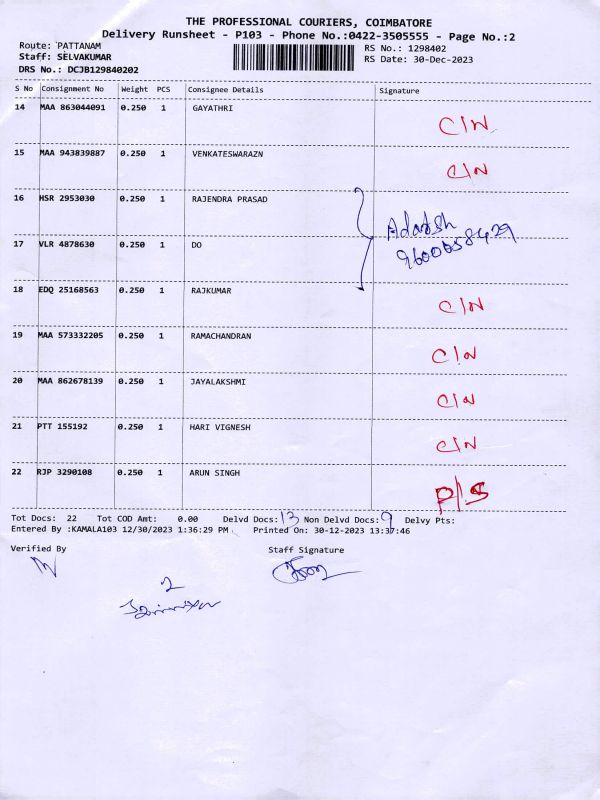 THE PROFESSIONAL COURIERS, COIMBATORE
Delivery Runsheet - P103 - Phone No.:0422-3505555 - Page No.:2
Route: PATTANAM RS No.: 1298402
Staff: SELVAKUMAR RS Date: 30-Dec-2023
DRS No.: DCJB129840202
S No Consignment No Weight PCS Consignee Details Signature
14 MAA 863044091 0.250 1 GAYATHRI C/N
15 MAA 943839887 0.250 1 VENKATESWARAZN C/N
16 HSR 2953030 0.250 1 RAJENDRA PRASAD
Adarsh
17 VLR 4878630 0.250 1 DO
9600058429
18 EDQ 25168563 0.250 1 RAJKUMAR C/N
19 MAA 573332205 0.250 1 RAMACHANDRAN C/N
20 MAA 862678139 0.250 1 JAYALAKSHMI C/N
21 PTT 155192 0.250 1 HARI VIGNESH C/N
22 RJP 3290108 0.250 1 ARUN SINGH P/S
Tot Docs: 22 Tot COD Amt: 0.00 Delvd Docs: 13 Non Delvd Docs: 9 Delvy Pts:
Entered By :KAMALA103 12/30/2023 1:36:29 PM Printed On: 30-12-2023 13:37:46
Verified By Staff Signature